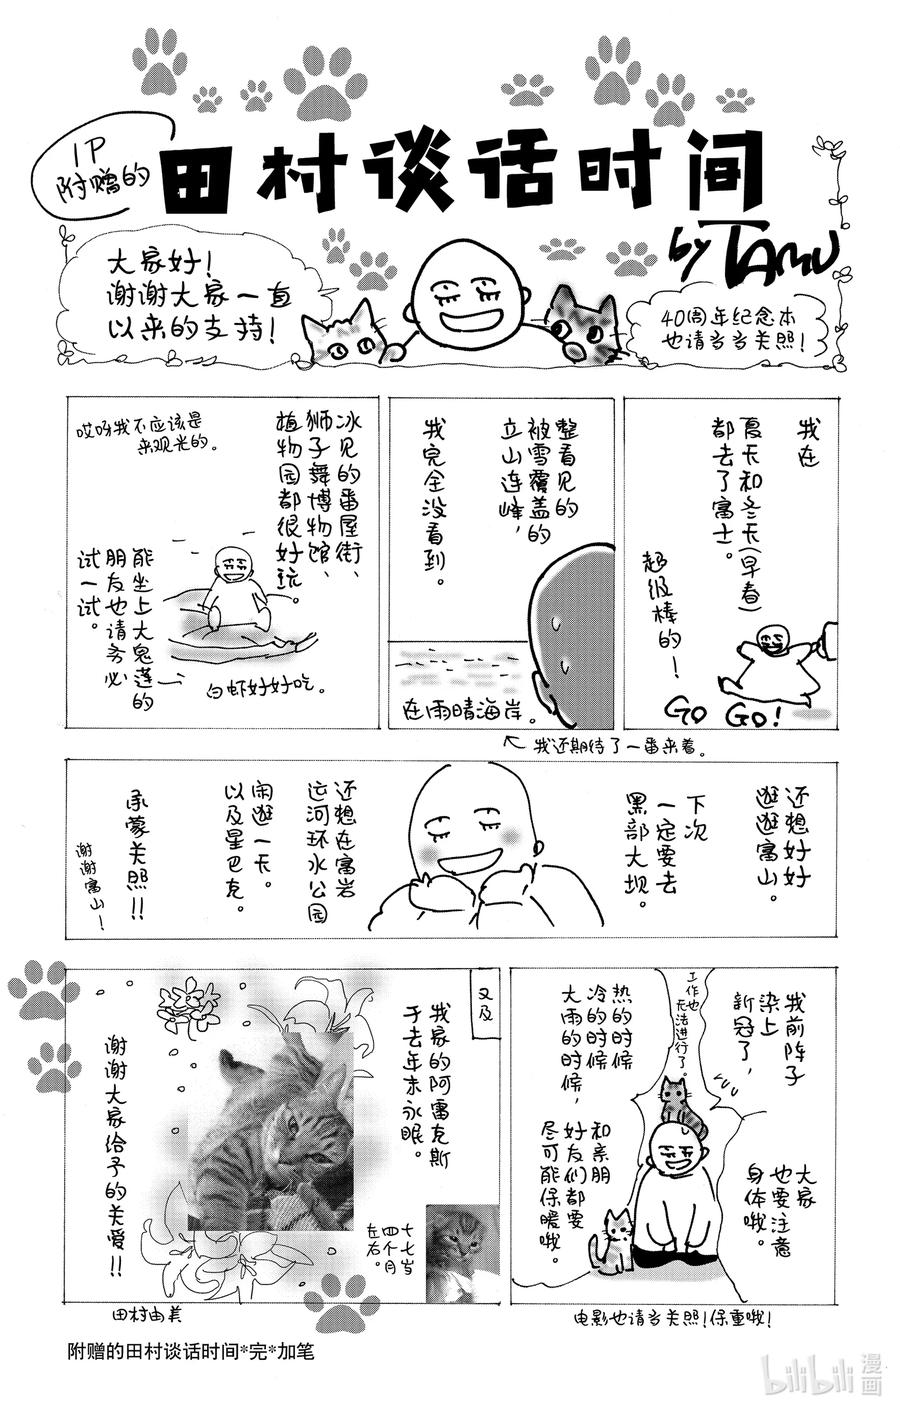 1P
附赠的
田村谈话时间
by TAMU
大家好!
谢谢大家一直
以来的支持!
40周年纪念本
也请多多关照!
我在
夏天和冬天(早春)
都去了富士。
超级棒的!
GO GO!
整看见的
被雪覆盖的
立山连峰,
我完全没看到。
在雨晴海岸。
我还期待了一番来着。
冰见的番屋街、
狮子舞博物馆、
植物园都很好玩。
哎呀我不应该是
来观光的。
能坐上大鬼莲的
朋友也请务必
试一试。
白虾好好吃。
还想好好
逛逛富山。
下次
一定要去
黑部大坝。
还想在富岩
运河环水公园
闲逛一天。
以及星巴克。
承蒙关照!!
谢谢富山!
我前阵子
染上
新冠了,
工作也
无法进行了。
大家
也要注意
身体哦。
热的时候
冷的时候
大雨的时候,
和亲朋
好友们都要
尽可能保暖哦。
电影也请多关照!保重哦!
又及
我家的阿雷克斯
于去年末永眠。
十七岁
四个月
左右。
谢谢大家给予的关爱!!
田村由美
附赠的田村谈话时间*完*加笔
bilibili 漫画